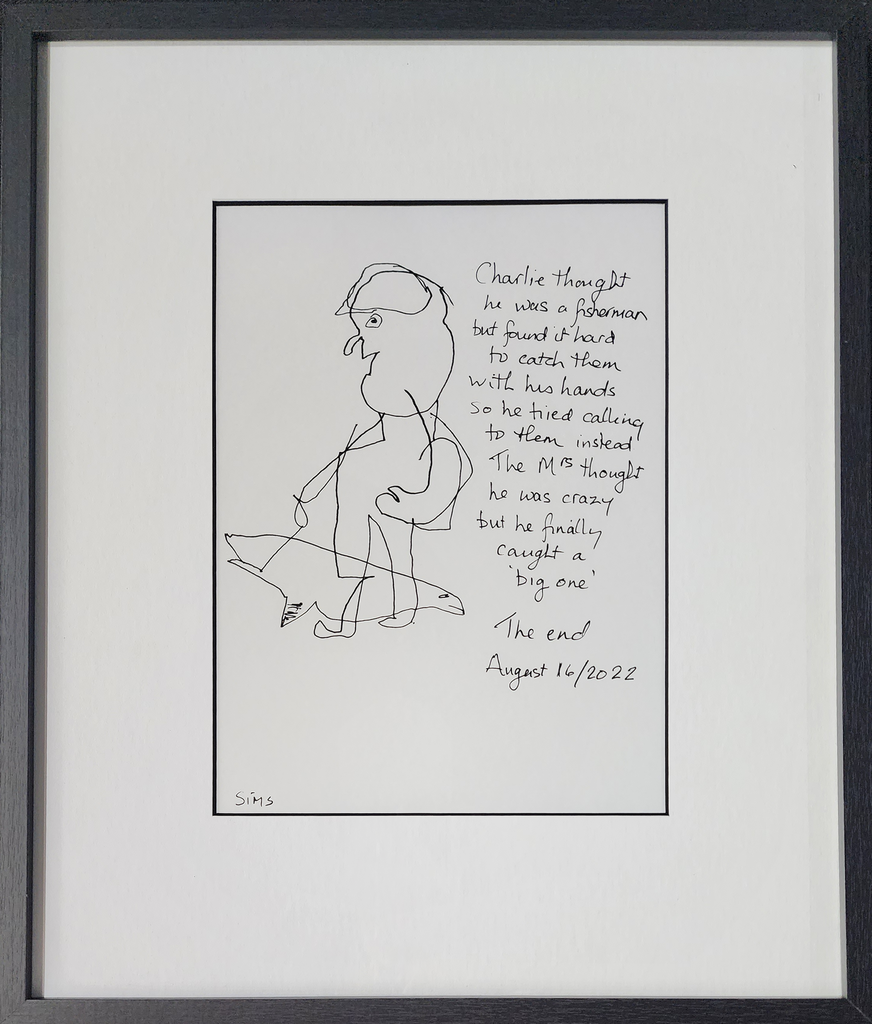 Charlie thought
he was a fisherman
but found it hard
to catch them
with his hands
So he tried calling
to them instead
The Mrs thought
he was crazy
but he finally
caught a
'big one'
The end
August 16/2022
SiMS